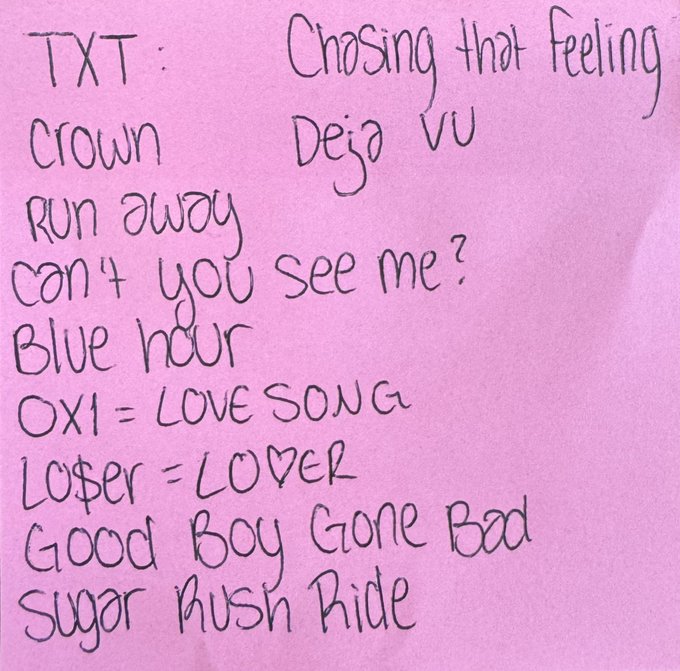 TXT:
Crown
Run away
can't you see me?
Blue hour
0X1 = LOVE SONG
LO$er = LO♡ER
Good Boy Gone Bad
Sugar Rush Ride
Chasing that feeling
Deja VU